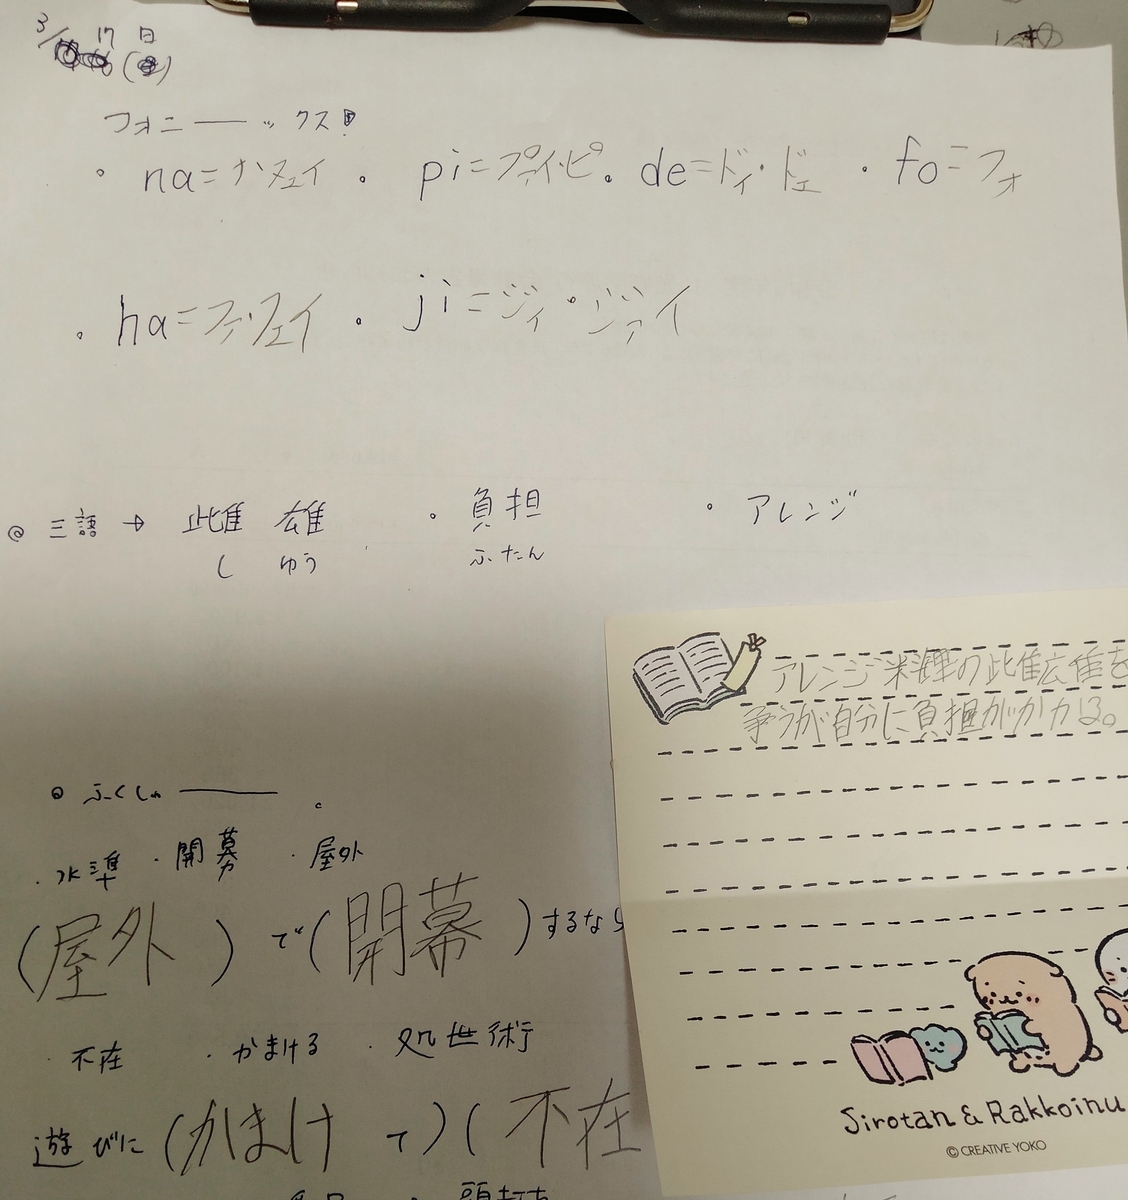 3/ 17 日
フォニーックス
・ na=ナ・ネェイ ・ pi=プァイ・ピ ・ de=ドィ・ドェ ・ fo=フォ
・ ha=ファ・フェイ ・ ji=ジィ・ジァイ
◎ 三語 → 雌雄 ・ 負担 ・ アレンジ
し ゆう ふたん
アレンジ料理の雌雄を
争うが自分に負担がかかる。
◎ ふくしゅ 。
・ 水準 ・ 開幕 ・ 屋外
(屋外)で(開幕)するなら
・ 不在 ・ かまける ・ 処世術
遊びに(かまけて)(不在
頭打ち
Sirotan & Rakkoinu
© CREATIVE YOKO